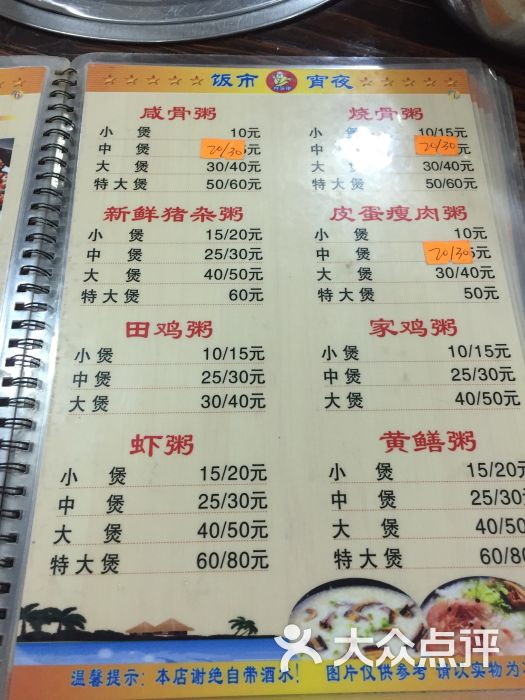 饭市 宵夜
咸骨粥
小煲 10元
中煲 20/30 5元
大煲 30/40元
特大煲 50/60元
烧骨粥
小煲 10/15元
中煲 20/30
大煲 30/40元
特大煲 50/60元
新鲜猪杂粥
小煲 15/20元
中煲 25/30元
大煲 40/50元
特大煲 60元
皮蛋瘦肉粥
小煲 10元
中煲 20/30 5元
大煲 30/40元
特大煲 50元
田鸡粥
小煲 10/15元
中煲 25/30元
大煲 30/40元
家鸡粥
小煲 10/15元
中煲 25/30元
大煲 40/50元
虾粥
小煲 15/20元
中煲 25/30元
大煲 40/50元
特大煲 60/80元
黄鳝粥
小煲 15/20元
中煲 25/30元
大煲 40/50元
特大煲 60/80元
温馨提示：本店谢绝自带酒水！ 图片仅供参考 请以实物为
大众点评